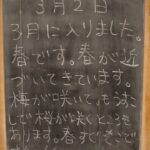 3月2日
3月に入りました。
春です。春が近
づいてきています。
梅が咲いて、もうすこ
しで桜が咲くところも
あります。春すぐそこで